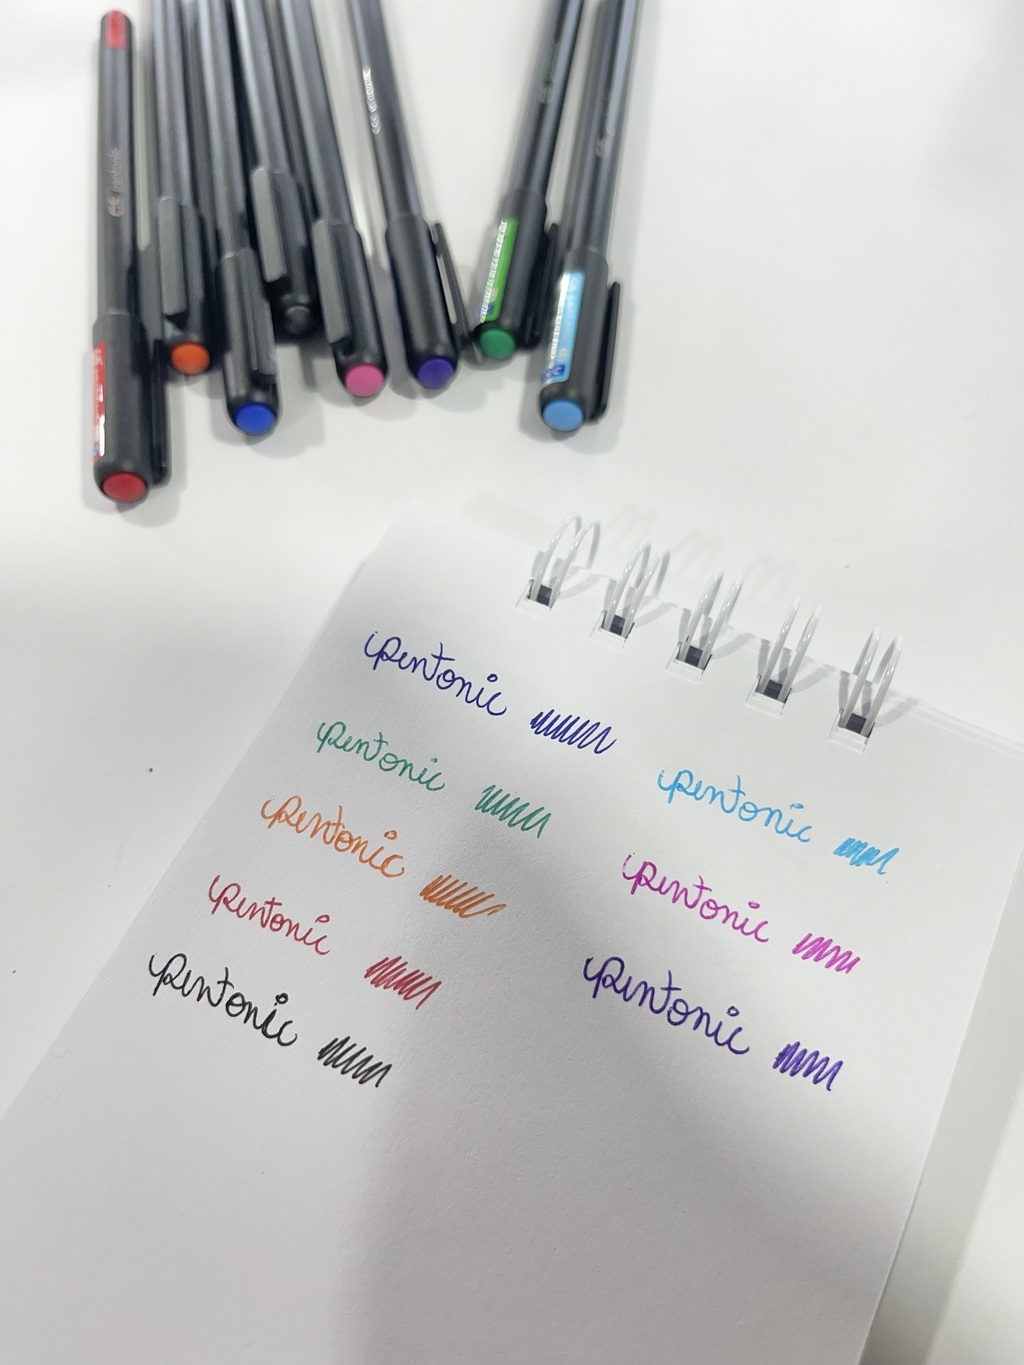 pentonic
Pentonic
Pentonic
Pentonic
Pentonic
Pentonic
Pentonic
Pentonic
Pentonic